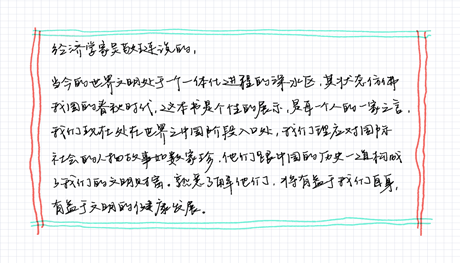 经济学家吴敬琏说的:
当今的世界文明处于一个一体化进程的深水区,其状态仿佛
我国的春秋时代,这本书是个性的展示,是再一人的一家之言,
我们现在处在世界之中国阶段入口处,我们理应对国际
社会的人物故事如数家珍,他们跟中国的历史一道构成
了我们的文明财富。熟悉了解他们,将有益于我们自身,
有益于文明的健康发展。